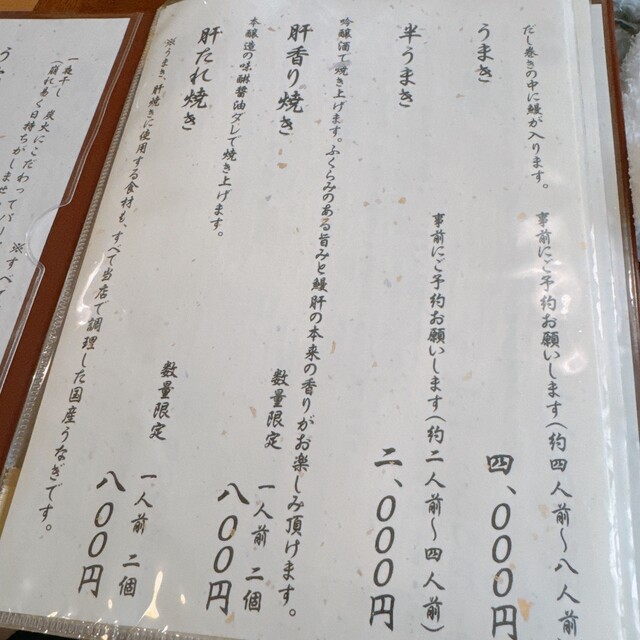 だし巻きの中に鰻が入ります。
事前にご予約お願いします(約四人前～八人前
うまき
四、000円
事前にご予約お願いします(約二人前～四人前)
半うまき
二、000円
吟醸酒で焼き上げます。ふくらみのある旨みと鰻肝の本来の香りがお楽しみ頂けます。
肝香り焼き
数量限定
一人前 二個
八00円
本醸造の
醤油ダレで焼き上げます。
肝たれ焼き
数量限定
一人前 二個
八00円
※うまき、肝焼きに使用する食材も、すべて当店で調理した国産うなぎです。